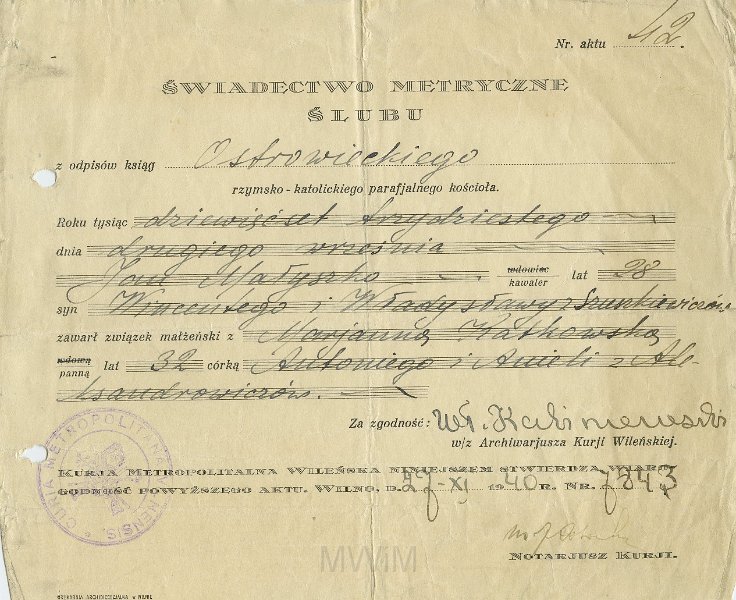 Nr. aktu 42.
ŚWIADECTWO METRYCZNE
ŚLUBU
z odpisów ksiąg Ostrowieckiego
rzymsko-katolickiego parafjalnego kościoła.
Roku tysiąc dziewięćset trzydziestego
dnia drugiego września
Jan Małyszko wdowiec kawaler lat 28
syn Wincentego i Władysławy z Szunkiewiczów
zawarł związek małżeński z Marjanną Katkowską
wdową panną lat 32 córką Antoniego i Anieli z Ale-
ksandrowiczów.
Za zgodność: Wł.
w/z Archiwarjusza Kurji Wileńskiej.
CURIA METROPOLITANA VILNENSIS
Kurja Metropolitalna Wileńska niniejszem stwierdza wiaro-
godność powyższego aktu. Wilno, d. 27-XI 1940 r. Nr. 7843
Notarjusz Kurji.
MWiM
DRUKARNIA ARCHIDIECEZJALNA w WILNIE